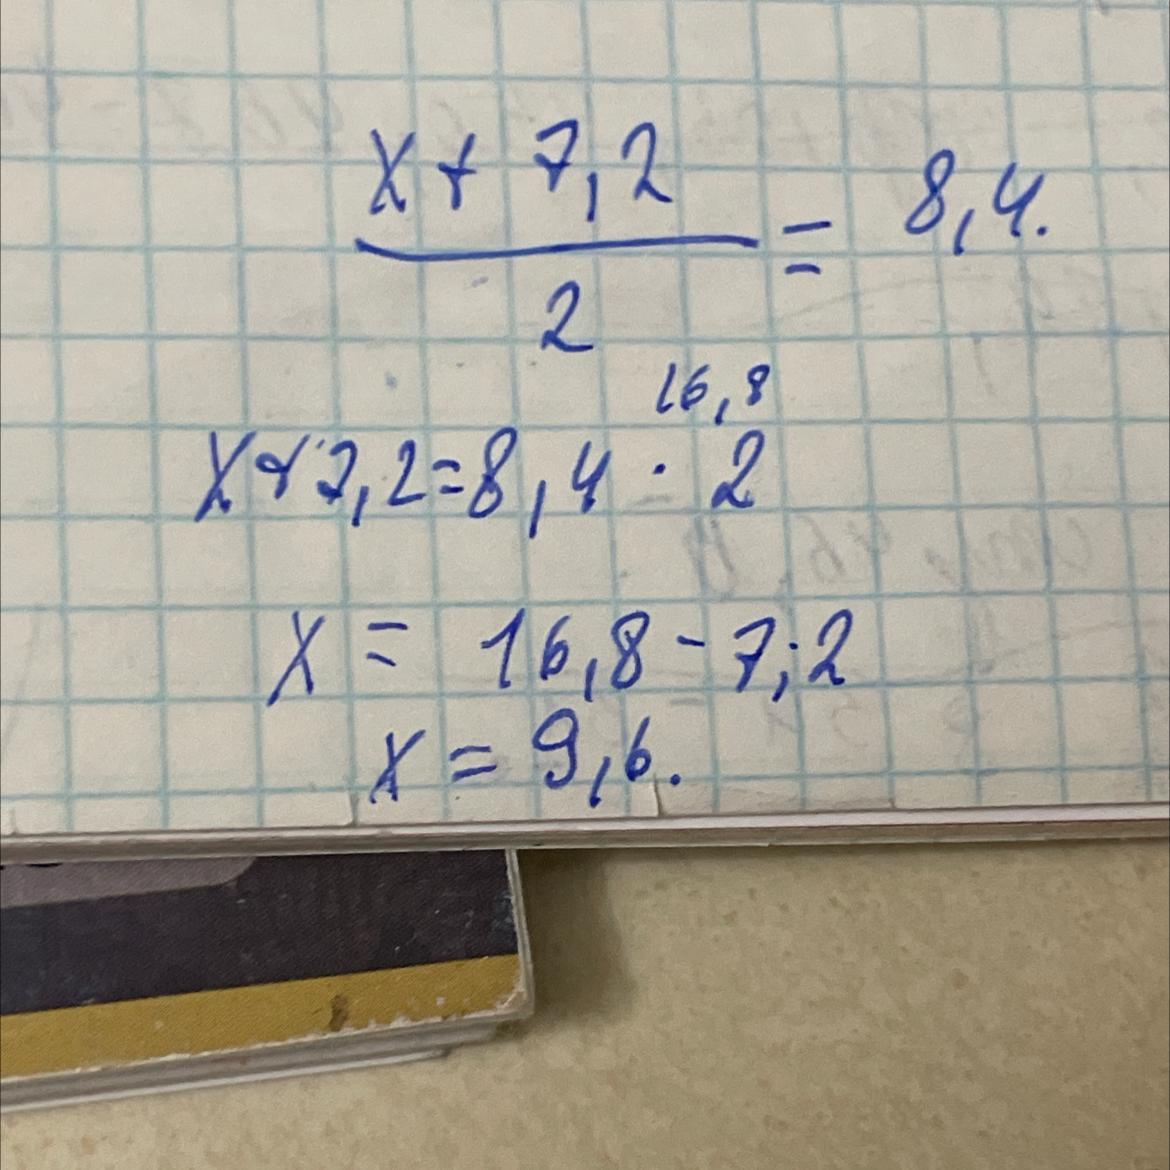 x + 7,2
2
= 8,4.
16,8
x + 7,2 = 8,4 · 2
x = 16,8 - 7,2
x = 9,6.